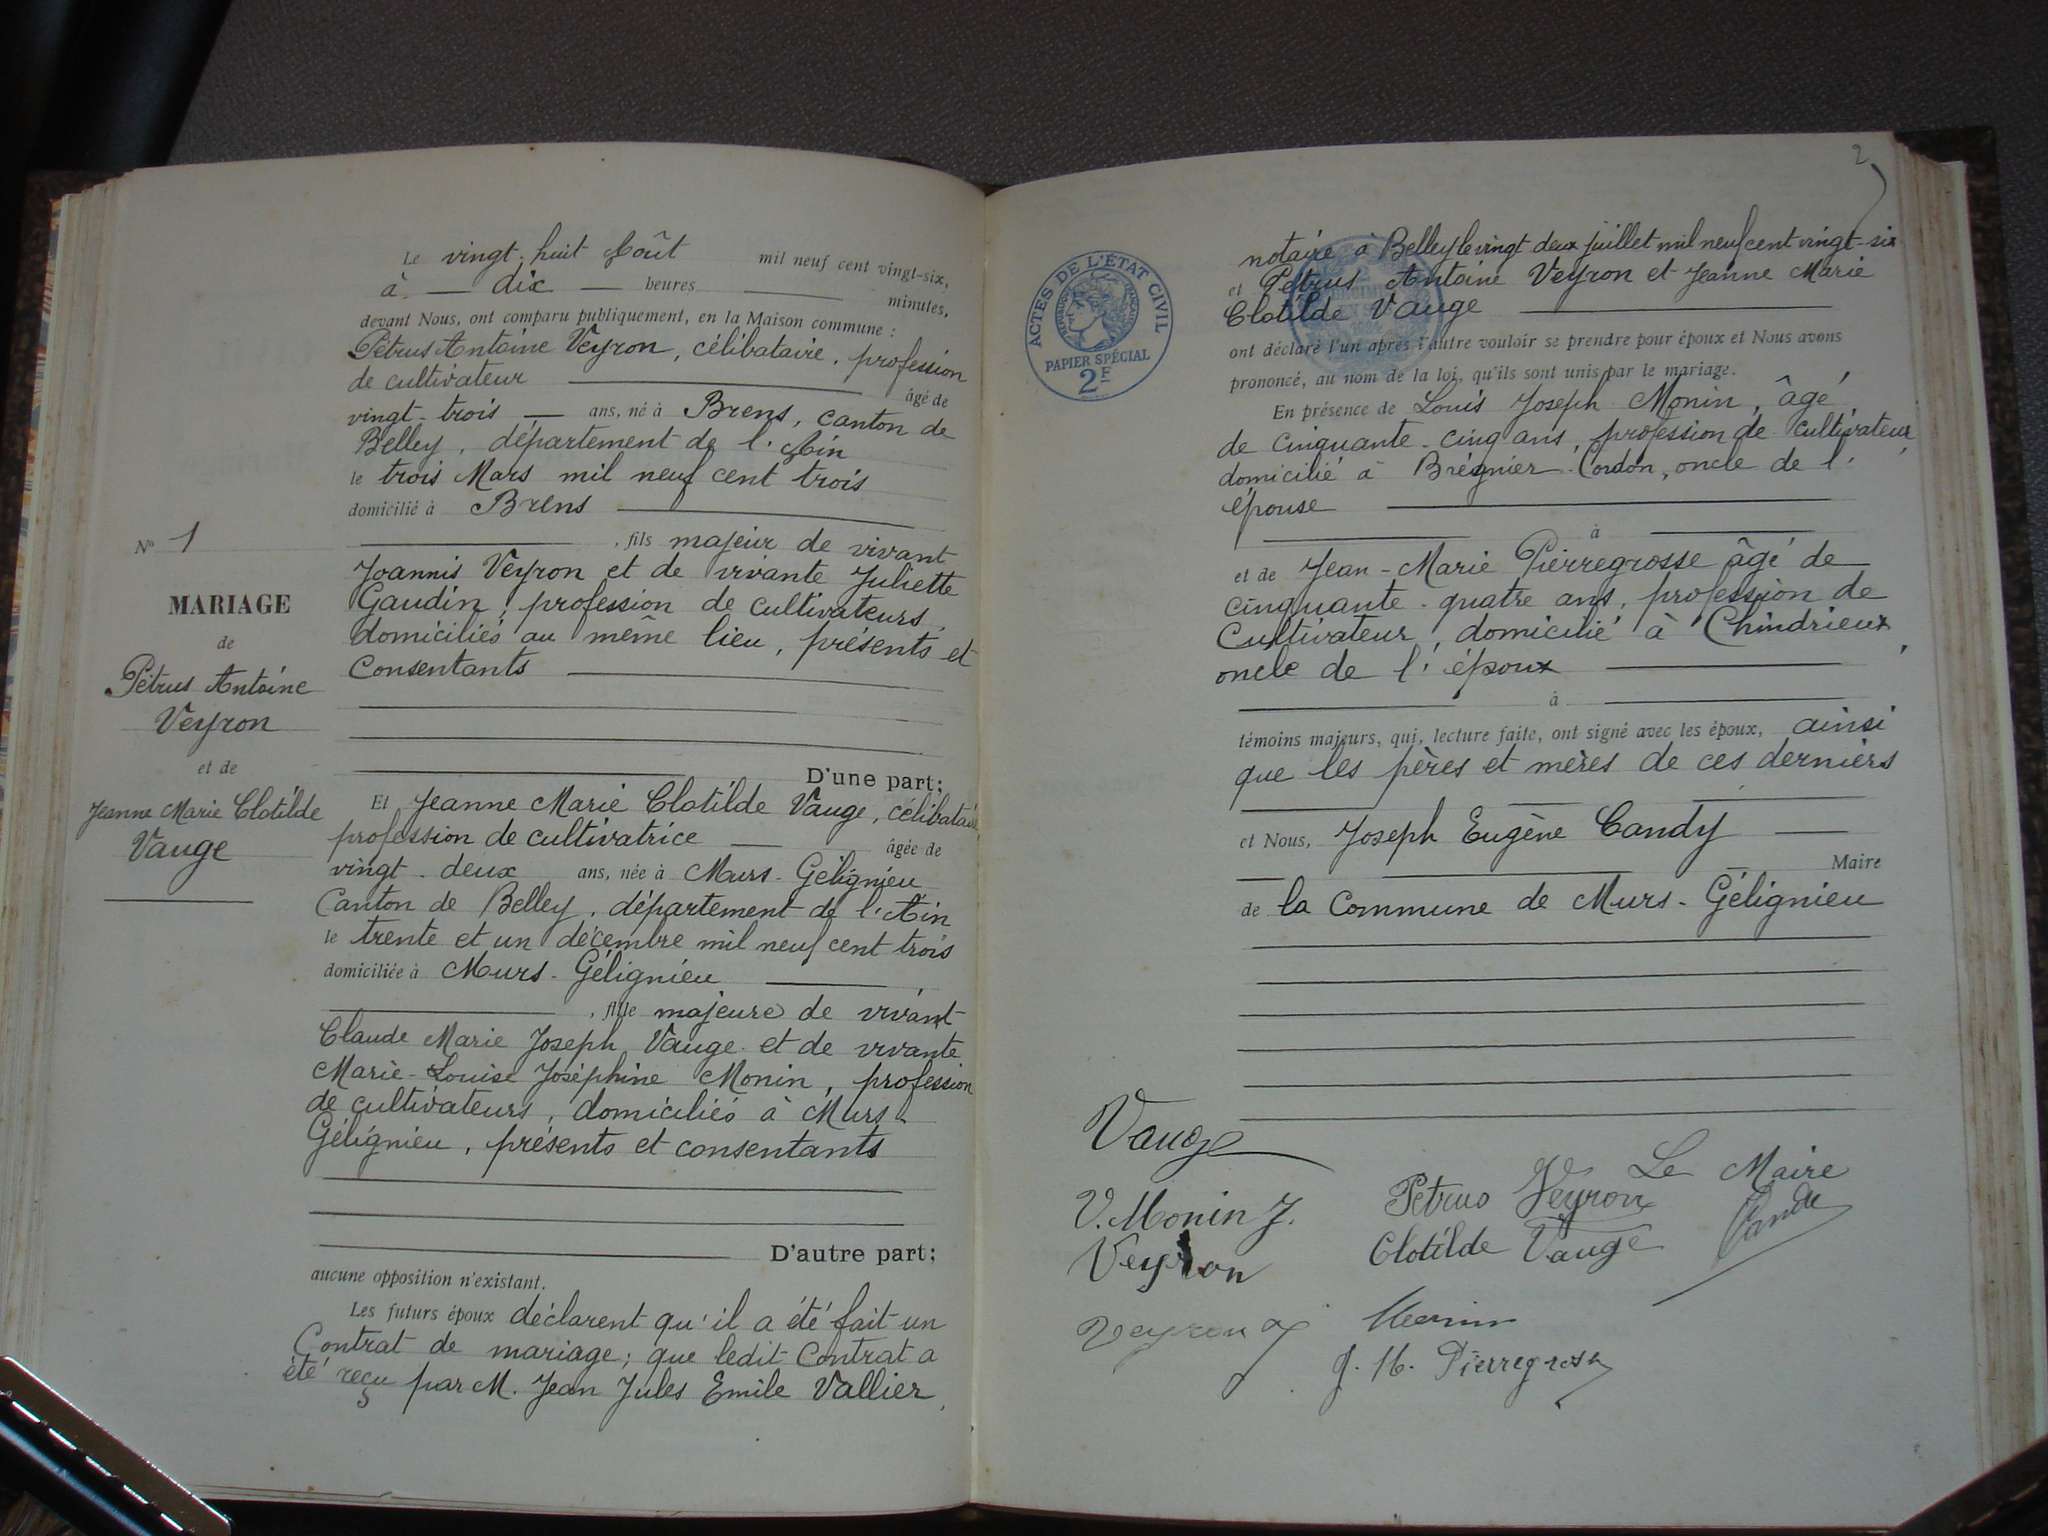 Le vingt-huit Août mil neuf cent vingt-six,
à — dix — heures — minutes,
devant Nous, ont comparu publiquement, en la Maison commune :
Pétrus Antoine Veyron, célibataire, profession
de cultivateur — âgé de
vingt-trois — ans, né à Brens, canton de
Belley, département de l'Ain
le trois Mars mil neuf cent trois
domicilié à Brens
, fils majeur de vivant
Joannis Veyron et de vivante Juliette
Gaudin, profession de cultivateurs,
domiciliés au même lieu, présents et
consentants
D'une part;
Et Jeanne Marie Clotilde Vauge, célibataire
profession de cultivatrice — âgée de
vingt-deux ans, née à Murs-Gélignieu
Canton de Belley, département de l'Ain
le trente et un décembre mil neuf cent trois
domiciliée à Murs-Gélignieu
, fille majeure de vivant
Claude Marie Joseph Vauge et de vivante
Marie-Louise Joséphine Monin, profession
de cultivateurs, domiciliés à Murs-
Gélignieu, présents et consentants
D'autre part;
aucune opposition n'existant.
Les futurs époux déclarent qu'il a été fait un
Contrat de mariage; que ledit Contrat a
été reçu par M. Jean Jules Emile Vallier,
No 1
MARIAGE
de
Pétrus Antoine
Veyron
et de
Jeanne Marie Clotilde
Vauge
2
ACTES DE L'ÉTAT CIVIL
PAPIER SPÉCIAL
2F
notaire à Belley le vingt deux juillet mil neuf cent vingt-six
et Pétrus Antoine Veyron et Jeanne Marie
Clotilde Vauge
ont déclaré l'un après l'autre vouloir se prendre pour époux et Nous avons
prononcé, au nom de la loi, qu'ils sont unis par le mariage.
En présence de Louis Joseph Monin, âgé
de cinquante-cinq ans, profession de cultivateur,
domicilié à Brégnier-Cordon, oncle de l'
épouse
à
et de Jean-Marie Pierregrosse âgé de
cinquante-quatre ans, profession de
Cultivateur, domicilié à Chindrieux,
oncle de l'époux
à
témoins majeurs, qui, lecture faite, ont signé avec les époux, ainsi
que les pères et mères de ces derniers
et Nous, Joseph Eugène Candy —
Maire
de la Commune de Murs-Gélignieu
Vauge
V. Monin J.
Veyron
Veyron
Petrus Veyron
Clotilde Vauge
Le Maire
Candy
Monin
J. M. Pierregrosse